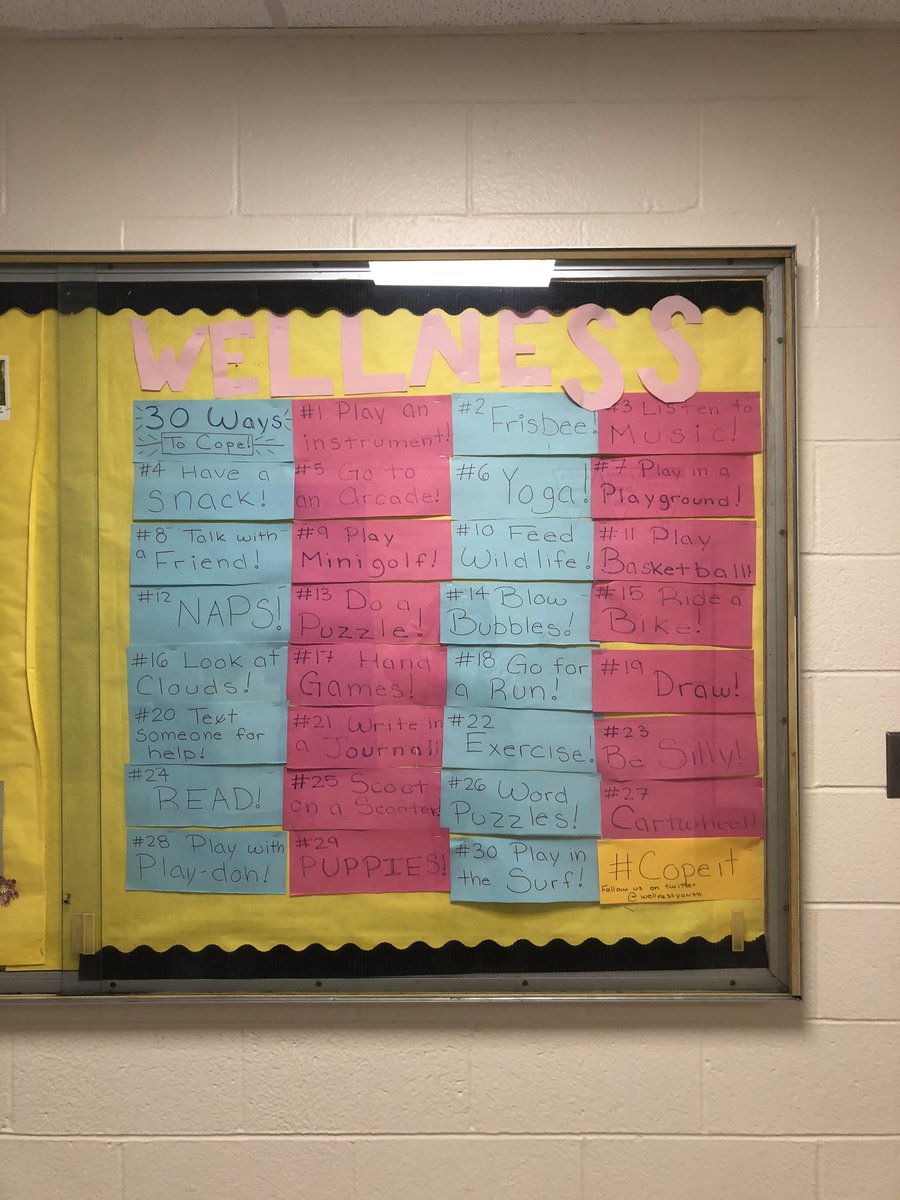 WELLNESS
30 Ways
To Cope!
#1 Play an
instrument!
#2
Frisbee!
#3 Listen to
Music!
#4 Have a
snack!
#5 Go to
an Arcade!
#6
Yoga!
#7 Play in a
Playground!
#8 Talk with
a Friend!
#9 Play
Mini golf!
#10 Feed
Wildlife!
#11 Play
Basketball!
#12
NAPS!
#13 Do a
Puzzle!
#14 Blow
Bubbles!
#15 Ride a
Bike!
#16 Look at
Clouds!
#17 Hand
Games!
#18 Go for
a Run!
#19
Draw!
#20 Text
Someone for
help!
#21 Write in
a Journal!
#22
Exercise!
#23
Be Silly!
#24
READ!
#25 Scoot
on a Scooter
#26 Word
Puzzles!
#27
Cartwheel!
#28 Play with
Play-doh!
#29
PUPPIES!
#30 Play in
the Surf!
#Copeit
Follow us on twitter
@wellnessyouth